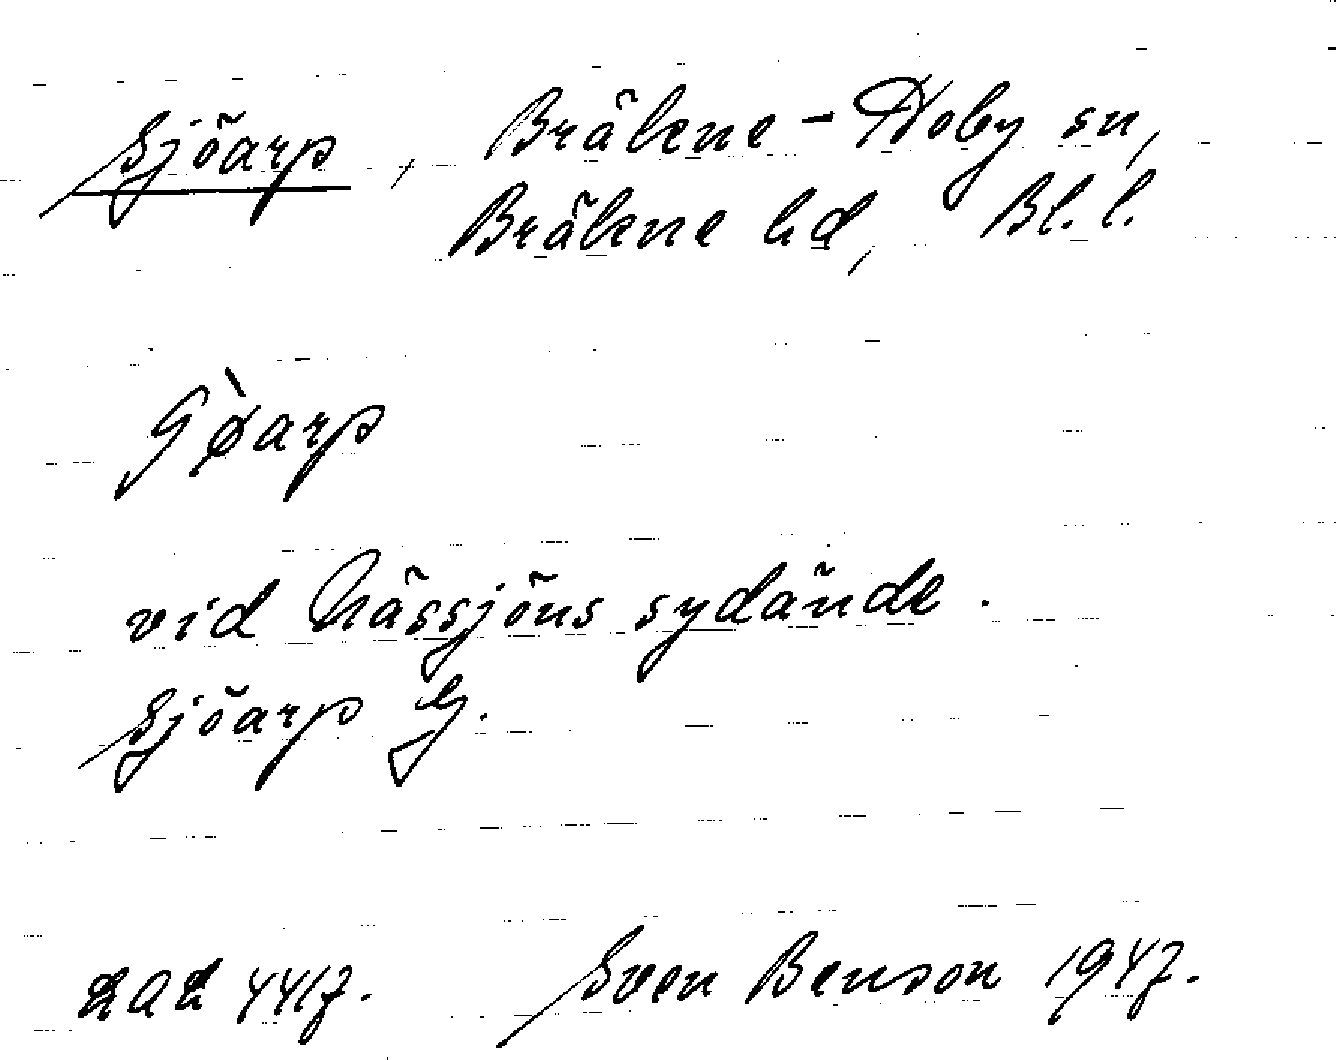 Sjöarp, Bräkne-Hoby sn,
Bräkne hd, Bl. l.
vid Nässjöns sydände.
Sjöarp
Sven Benson 1947.